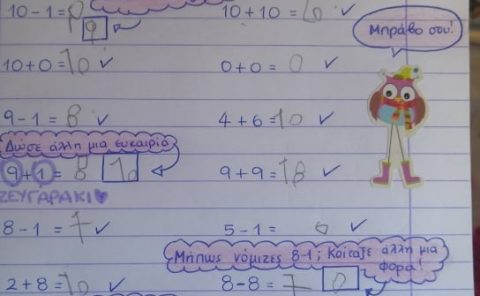 10-1= 9 10+10= ✓
9
Μπράβο σου!
10+0=10 ✓ 0+0= 0 ✓
9-1= 8 ✓ 4+6=10 ✓
Δώσε άλλη μια ευκαιρία
9+1= 8 10 9+9=18 ✓
ΖΕΥΓΑΡΑΚΙ♥
8-1=7 ✓ 5-1= ✓
Μήπως νόμιζες 8-1; Κοίταξε άλλη μια
φορά!
2+8=10 ✓ 8-8= 7 0